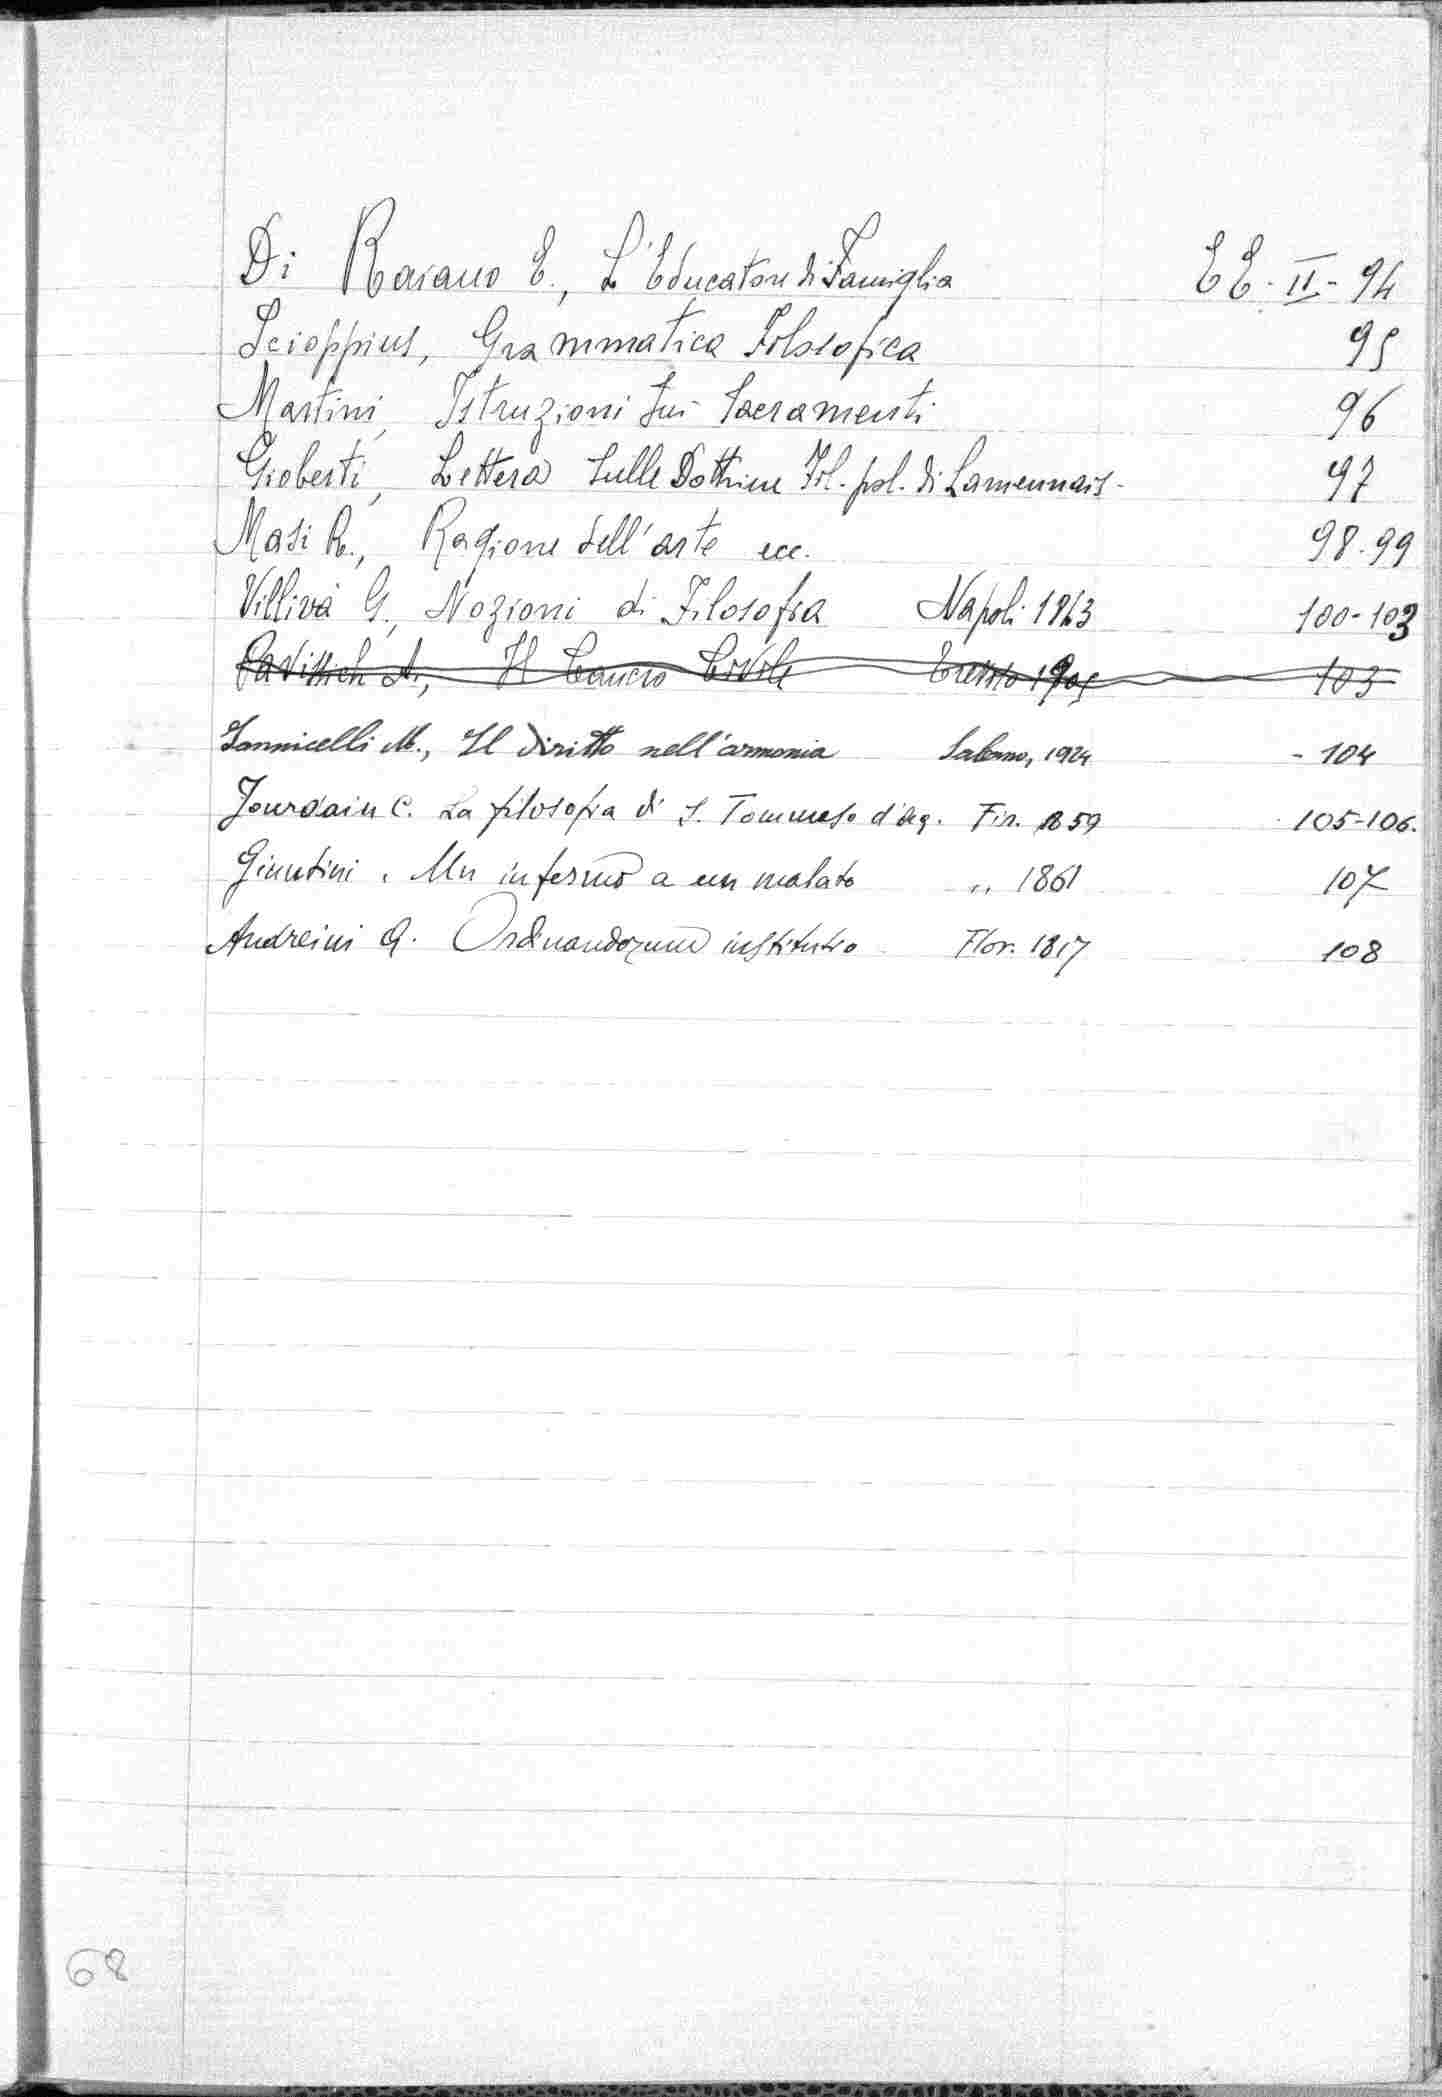 Di Raiano E., L'Educatore di Famiglia EE - II - 94
Scioppius, Grammatica Filosofica 95
Martini, Istruzioni sui Sacramenti 96
Gioberti, Lettera sulle Dottrine Fil. pol. di Lamennais - 97
Masi R., Ragione dell'arte ecc. 98-99
Villivà G., Nozioni di Filosofia Napoli 1863 100-103
Pavissich A., Il Cancro Civile Treviso 1905 103
Iannicelli M., Il diritto nell'armonia Salerno, 1924 - 104
Jourdain C. La filosofia di S. Tommaso d'Aq. Fir. 1859 105-106.
Giuntini. Un infermo a un malato „ 1861 107
Andreini A. Ordinandorum institutio Flor. 1817 108
68